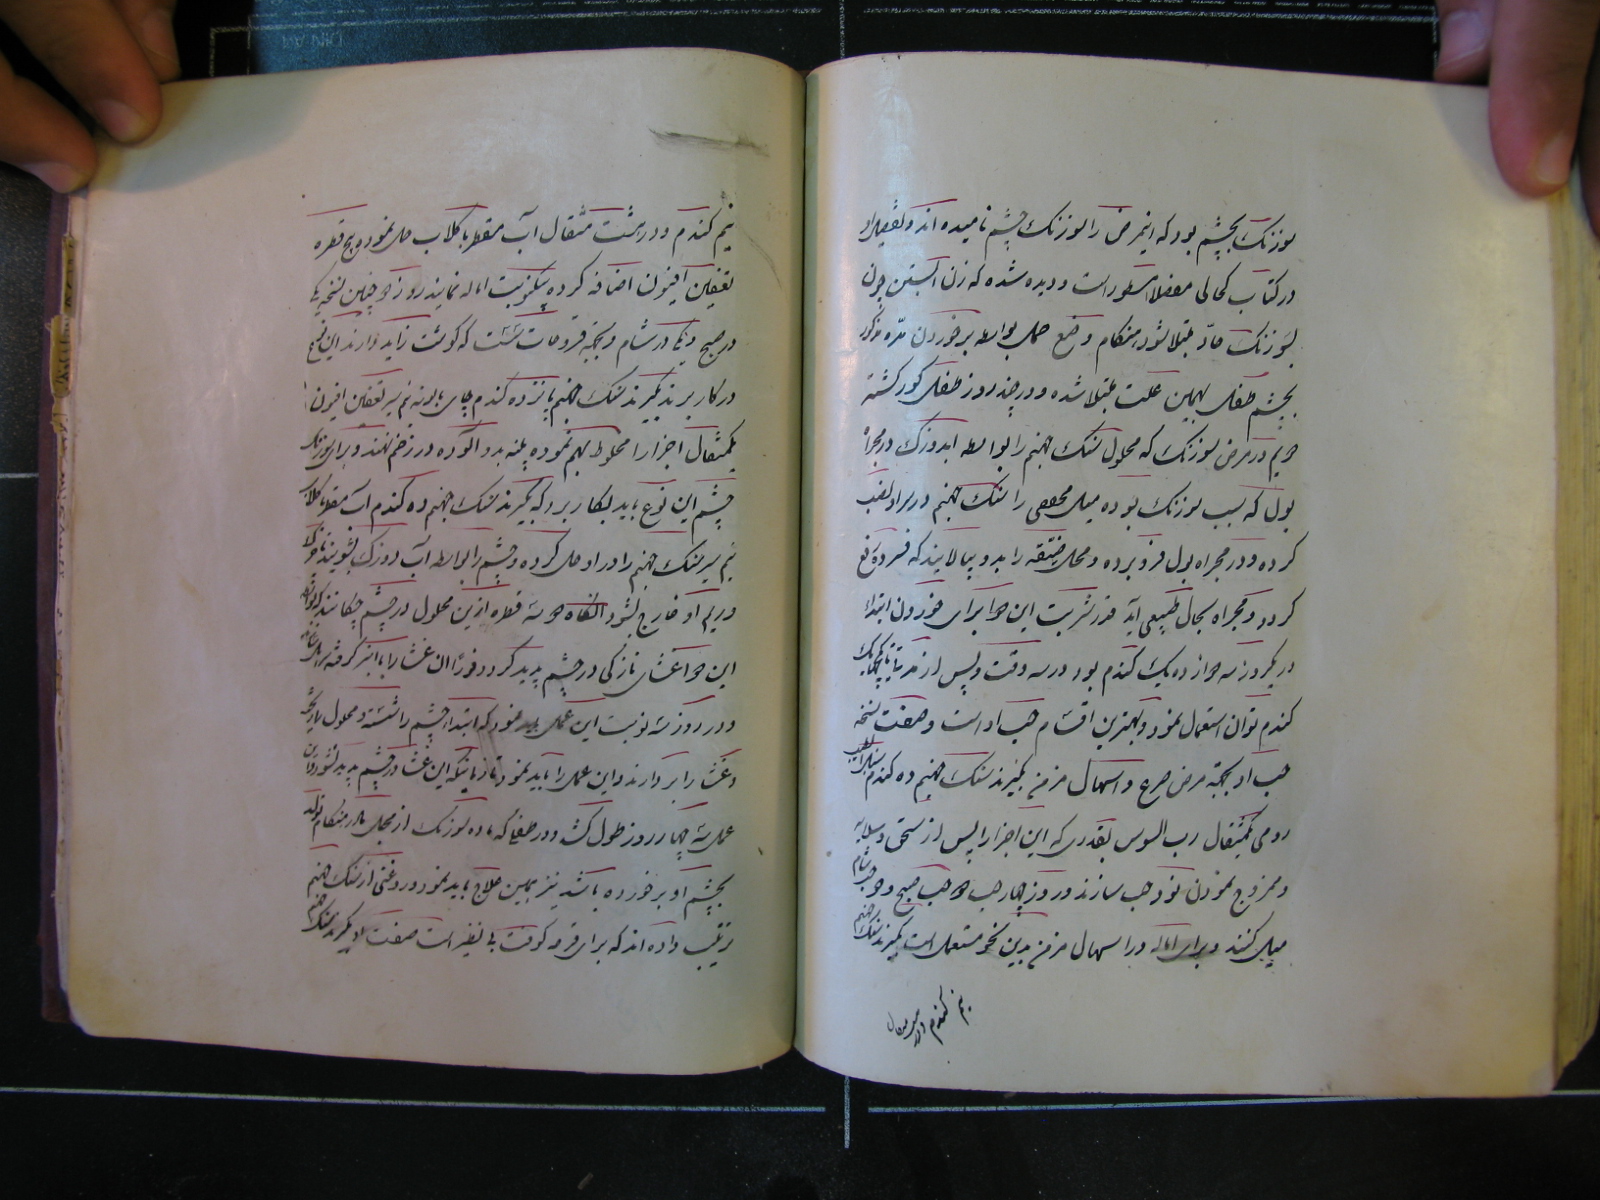 سوزنک بچشم بود که این مرض را سوزنک چشم نامیده اند و تفصیل او
در کتاب کحالی مفصلا مسطور است و دیده شده که زن آبستن چون
بسوزنک حاد مبتلا شود هنگام وضع حمل بواسطه برخوردن مده مذکور
بچشم طفل بهمین علت مبتلا شده و در چند روز طفل کور کشته
در مرض سوزنک که محلول سنک جهنم را بواسطه آبدوزک در مجراء
بول که سبب سوزنک بوده میل مجمعی را سنک جهنم در سر او نصب
کرده و در مجراه بول فرو برده و محل ضیقه را بدو بیالایند که فسرده رفع
کردد و مجراه بحال طبیعی آید قدر شربت این دوا برای خوردن ابتداء
در یکروز سه دوازده یک کندم بود در سه وقت و پس از مدتی تا یک
کندم توان استعمال نمود و بهترین اقسام حب او است و صفت نسخه
حب او بجهة مرض صرع و اسهال مزمن بکیرند سنک جهنم ده کندم سنبل الطیب
رومی یکمثقال رب السوس بقدری که این اجزا را پس از سحق و صلایه
و ممزوج نمودن نود حب سازند و روز چهار حب دو حب صبح و دو حب شام
میل کنند و برای اماله در اسهال مزمن بدین نحو مستعمل است بکیرند سنک جهنم
نیم کندم در مثقال
نیم کندم و در هشت مثقال آب مقطر یا کلاب حل نموده پنج قطره
تعفین افیون اضافه کرده بیکنوبت اماله نمایند روز دو چنین نسخه یکی
در صبح و یکی در شام و بجهة قروحات که کوشت زاید دارند این نسخه
در کار برند بکیرند سنک جهنم پانزده کندم چای بابونه نیم سیر تعفین افیون
یکمثقال اجزا را مخلوط بهم نموده پنبه بدو آلوده در زخم نهند و برای سوزنک
چشم این نوع باید بکار برد که بکیرند سنک جهنم ده کندم آب مقطر یا کلاب
نیم سیر سنک جهنم را در او حل کرده و چشم را بواسطه آب دوزک بشویند تا چرک
و ریم او خارج بشود آنکاه دو سه قطره ازین محلول در چشم چکانند که بواسطه
این دوا غشای نازکی در چشم پدید کردد فورا آن غشا را با انبر کرفته بردارند
و در روز سه نوبت این عمل باید نمود که ابتدا چشم را شسته و محلول
و غشا را بردارند و این عمل را باید نمود تا زمانیکه این غشا در چشم پدید نشود و این
عمل سه چهار روز طول کشد و در طفلی که ماده سوزنک از محل مادر هنکام تولد
بچشم او برخورده باشد نیز بهمین علاج باید نمود و روغنی از سنک جهنم
ترتیب داده اند که برای قرحه کوفت بی نظیر است صفت او بکیرند سنک جهنم